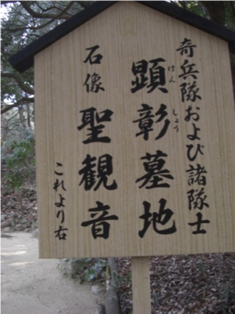 奇兵隊および諸隊士
顕彰墓地
けんしょう
石像 聖観音
これより右